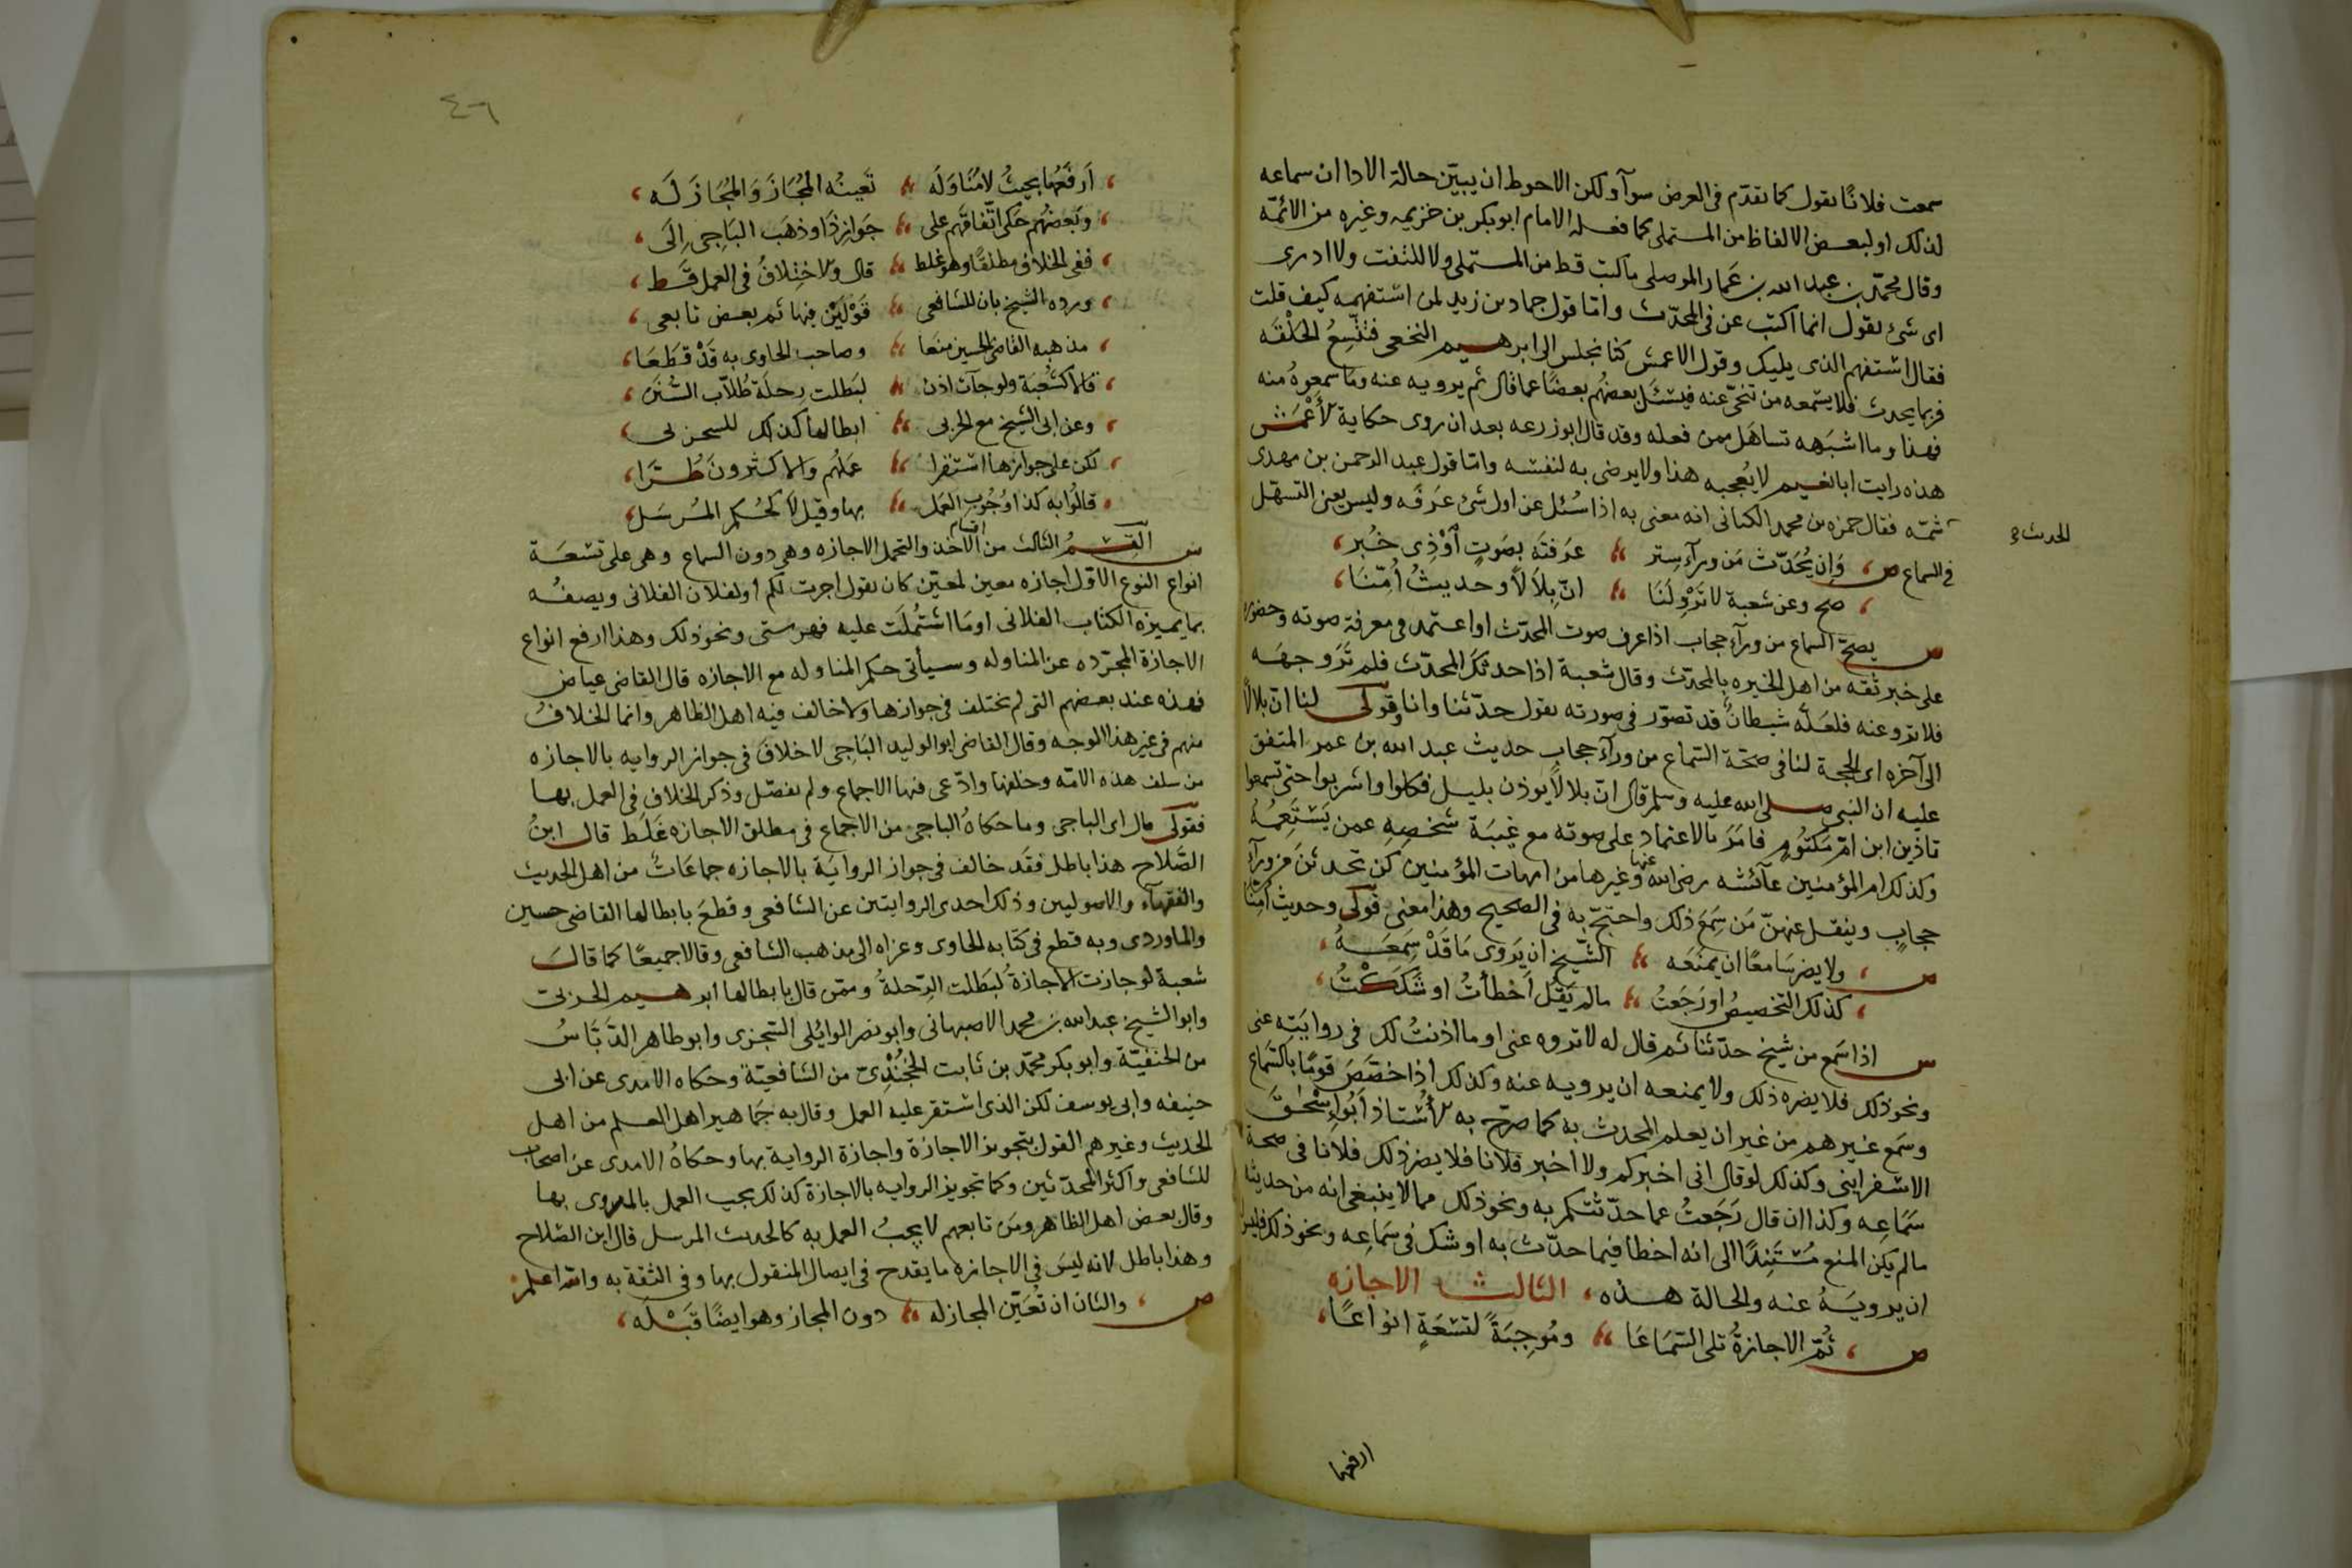 سمعت فلانًا يقول كما تقدّم فى العرض سوآ ولكن الاحوط ان يبيّن حالة الادا ان سماعه
لذلك او لبعض الالفاظ من المستملى كما فعله الامام ابو بكر بن خزيمه وغيره من الائمّه
وقال محمّد بن عبد الله بن عمار الموصلى ماكتبت قط من المستملى ولا التفت ولا ادرى
اى شئ يقول انما اكتب عن فى المحدّث وامّا قول حماد بن زيد لمن استفهمه كيف قلت
فقال استفهم الذى يليك وقول الاعمش كنا نجلس الى ابرهيم النخعى فتتّسِعُ الحَلْقَه
فربما يحدث فلا يسمعه من تنحّى عنه فيسئل بعضهُم بعضًا عما قال ثم يرويه عنه وما سمعوه منه
فهذا وما اشبَهه تساهَل ممن فعله وقد قال ابو زرعه بعد ان روى حكاية الأعْمَش
هذه رايت ابا نعيم لا يُعجبه هذا ولا يرضى به لنفسه وامّا قول عبد الرحمن بن مهدى
ثمّه فقال حمزه بن محمد الكنانى انه معنى به اذا سُئل عن اول شئ عَرَفَه وليس يعنى التسهّل
الحديث
فى السماع ص وَاِن يُحَدّث مَن ورآء سِتر عَرَفتَه بصَوتٍ اَوْ ذِى خُبر
صح وعن شعبة لا تَرْوِ لَنَا انّ بِلاَلاً وحديثُ اُمّنَا
س يصحّ السماع من ورآء حجاب اذا عرف صوت المحدّث او اعتمد فى معرفة صوته وحضوره
على خبر ثقه من اهل الخبره بالمحدّث وقال شعبة اذا حدثكَ المحدّث فلم تَرَ وجهَه
فلا ترو عنه فلعَلّه شيطانٌ قد تصوّر فى صورته يقول حدّثنا وانا وقولى لنا انّ بلالاً
الى آخره اى الحجة لنا فى صحّة السّماع من ورآء حجاب حديث عبد الله بن عمر المتفق
عليه ان النبى صلى الله عليه وسلم قال انّ بلالاً يوذن بليل فكلوا واشربوا حتى تسمعوا
تاذين ابن امّ مَكتُومٍ فامَرَ بالاعتماد على صوته مع غيبَة شخصِهِ عمن يَسْتَمِعُهُ
وكذلك ام المؤمنين عآئشه رضى الله عنها وغيرها من امهات المؤمنين كن تحدثن من ورآء
حجابٍ وينقل عنهنّ مَن سَمِعَ ذلك واحتجّ به فى الصحيح وهذا معنى قولى وحديث اُمّنا
ص ولا يضر سَامعًا ان يمنَعَه الشّيخ ان يَروى مَا قَدْ سمِعَهُ
كذلك التخصيصُ او رَجَعتُ مالم يَقُل اَخْطأتُ او شَكَكْتُ
س اذا سَمع من شيخ حدّثنا ثم قال له لا تروه عنى او ما اذنتُ لك فى روايَتِه عنى
ونحو ذلك فلا يضره ذلك ولا يمنعه ان يرويه عنه وكذلك اذا خصّصَ قومًا بالسّماع
وسَمع غيرهم من غير ان يعلم المحدث به كما صرّح به الأُستاذ أبُو اِسْحٰقَ
الاسفراينى وكذلك لو قال انى اخبركم ولا اخبر فلانا فلا يضر ذلك فلانا فى صحة
سَمَاعِه وكذا ان قال رَجَعتُ عما حدّثتكم به ونحو ذلك مما لا ينبغى انه من حديثا
مالم يكن المنع مُسْتَنِدًا الى انه اخطا فيما حدّث به او شك فى سَمَاعِه ونحو ذلك فليس
ان يرويَهُ عنه والحالة هذه، الثالث الاجازه
ص ثُمّ الاجازةُ تلى السّمَاعَا ونُوعِتْ لتسْعَةٍ انواعًا
ارفعها
٤٦
اَرفَعُهَا بحيثُ لا مُنَاوَلَه تَعيينُه المُجَازَ وَالمُجَازَ لَه
وبَعضُهُم حَكى اتّفاقَهم على جَوازِ ذَا وذهَب البَاجِى اِلَى
نفى الخلاف مطلقًا وهو غلط قال والاختِلافُ فى العمل قَط
ورده الشيخ بان للشافعى قَوْلَيْن فيها ثم بعض تابعى
مذهبه القاضى الحسين منَعَا وصاحب الحاوى به قَدْ قَطَعَا
قالا كشُعْبَة ولو جآت اذن لبَطلت رحلَة طُلاّب السُّنَن
وعن ابى الشيخ مع الحربى ابطالها كذاك للسجزى
لكن على جوازها استقرا عمَلهُم والاكثرونَ طُرَّا
قالُوا به كذا وُجُوب العَمل بها وقيل لا كحُكم المُرسَل
س القِسمُ الثالث من اقسام الاخذ والتحمل الاجازه وهى دون السماع وهى على تسْعَة
انواع النوع الاوّل اجازه معين لمعيّن كان يقول اجزت لكم او لفلان الفلانى ويصفُه
بما يميزه الكتاب الفلانى او مَا اشْتُمِلَت عليه فهرستى ونحو ذلك وهذا ارفع انواع
الاجازة المجرّده عن المناوله وسيأتى حكم المناوله مع الاجازه قال القاضى عياض
فهذه عند بعضهم التى لم يختلف فى جوازها ولا خالف فيه اهل الظاهر وانما الخلافُ
منهم فى غير هذا الوجه وقال القاضى ابو الوليد البَاجِى لا خلافَ فى جواز الروايه بالاجازه
من سلف هذه الامّه وخلفها وادّعى فيها الاجماع ولم يفصّل وذكر الخلاف فى العمل بها
فقولى قال اى الباجى وما حكاهُ الباجى من الاجماع فى مطلق الاجازه غَلَط قال ابنُ
الصَّلاح هذا باطل فقَد خالف فى جواز الروايَة بالاجازه جماعَاتٌ من اهل الحديث
والفقهآء والاصوليين وذلك احدى الروايتين عن الشافعى وقطَع بابطالها القاضى حسين
والماوردى وبه قطع فى كتابه الحاوى وعزاه الى مذهب الشافعى وقالا جميعًا كما قالَ
شعبة لو جازت الاجازةُ لبَطلت الرّحلةُ وممّن قال بابطالها ابرهيم الحربى
وابو الشيخ عبد الله بن محمد الاصبهانى وابو نصر الوايُلى السّجزى وابو طاهر الدَّبّاسُ
من الحنفيّة وابو بكر محمّد بن ثابت الخُجَنْدِىّ من الشافعيّة وحكاه الامدى عن ابى
حنيفه وابى يوسف لكن الذى استقر عليه العمل وقال به جَماهير اهل العلم من اهل
الحديث وغيرهم القول بتجويز الاجازة واجازة الرواية بها وحكاهُ الامدى عن اصحاب
الشافعى واكثر المحدّثين وكما تجويز الروايه بالاجازة كذلك يجب العمل بالمروى بها
وقال بعض اهل الظاهر ومَن تابعهم لا يجبُ العمل به كالحديث المرسل قال ابن الصّلاح
وهذا باطل لانه ليسَ فى الاجازه ما يقدح فى ايصال المنقول بها وفى الثقة به والله اعلم
ص والثان ان تُعَيّن المجاز له دون المجاز وهو ايضًا قَبْلَه